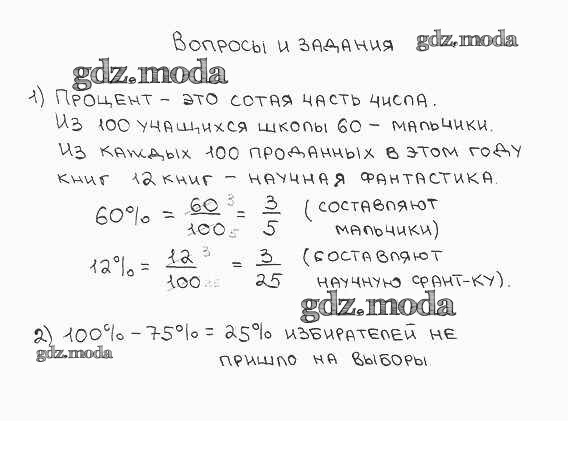 Вопросы и задания gdz.moda
gdz.moda
1) Процент – это сотая часть числа.
Из 100 учащихся школы 60 – мальчики.
Из каждых 100 проданных в этом году
книг 12 книг – научная фантастика.
60% = 60/100 = 3/5 (составляют
мальчики)
12% = 12/100 = 3/25 (составляют
научную фант-ку).
gdz.moda
2) 100% – 75% = 25% избирателей не
gdz.moda
пришло на выборы.